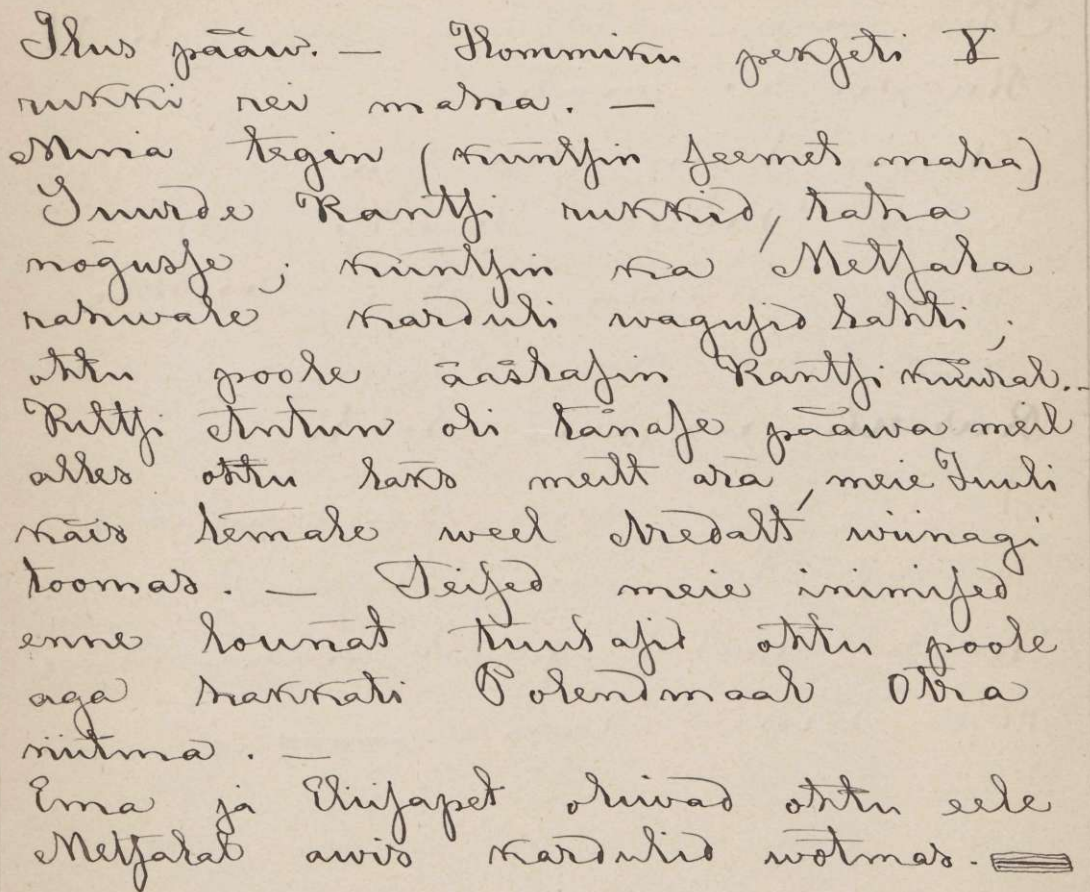 Ilus pääw. — Hommiku pekseti V
rukki rei maha. —
Mina tegin (küntsin seemet maha)
Suurde Kantsi rukkid, taha
nõgusse; küntsin ka Metsala
rahwale karduli wagusid lahti;
ohtu poole äästasin Kantsi küüral.—
Kiltsi Antun oli tänase pääwa meil
alles ohtu läks meilt ära, meie Juuli
käis temale weel Aredalt wiinagi
toomas. — Teised meie inimised
enne lounat kuulasid ohtu poole
aga hakkati Polendmaal Otra
niitma. —
Ema ja Eliisapet oliwad ohtu eele
Metsalal awis kardulid wõtmas.